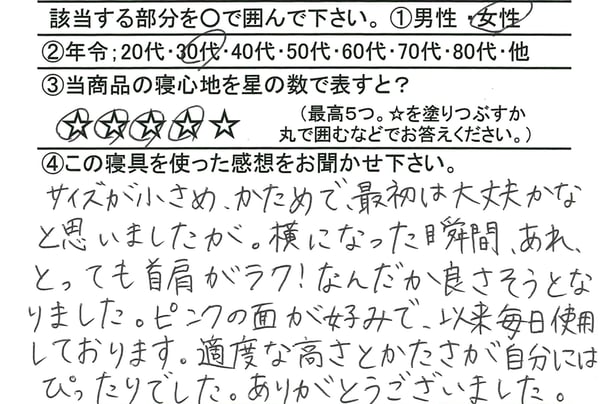 該当する部分を〇で囲んで下さい。①男性・女性
②年令;20代・30代・40代・50代・60代・70代・80代・他
③当商品の寝心地を星の数で表すと?
☆☆☆☆☆
(最高5つ。☆を塗りつぶすか
丸で囲むなどでお答えください。)
④この寝具を使った感想をお聞かせ下さい。
サイズが小さめ、かためで、最初は大丈夫かな
と思いましたが。横になった瞬間、あれ、
とっても首肩がラク!なんだか良さそうとな
りました。ピンクの面が好みで、以来毎日使用
しております。適度な高さとかたさが自分には
ぴったりでした。ありがとうございました。